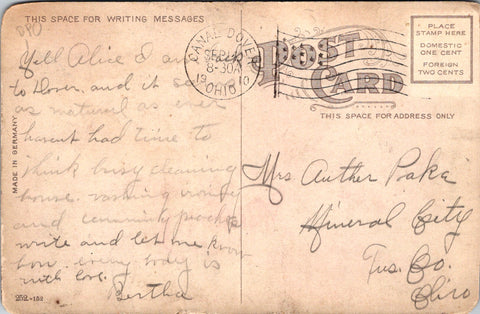 DPO
THIS SPACE FOR WRITING MESSAGES
Well Alice I am
to Dover, and it se
as natural as ever
havent had time to
think busy cleaning
house. washing ironing
and canning peaches
write and let me know
how every body is
with love.
Bertha
252-152
MADE IN GERMANY
CANAL DOVER
SEP
8-30A
1910
OHIO
POST
CARD
THIS SPACE FOR ADDRESS ONLY
PLACE
STAMP HERE
DOMESTIC
ONE CENT
FOREIGN
TWO CENTS
Mrs Auther
Mineral City
Tus. Co.
Ohio